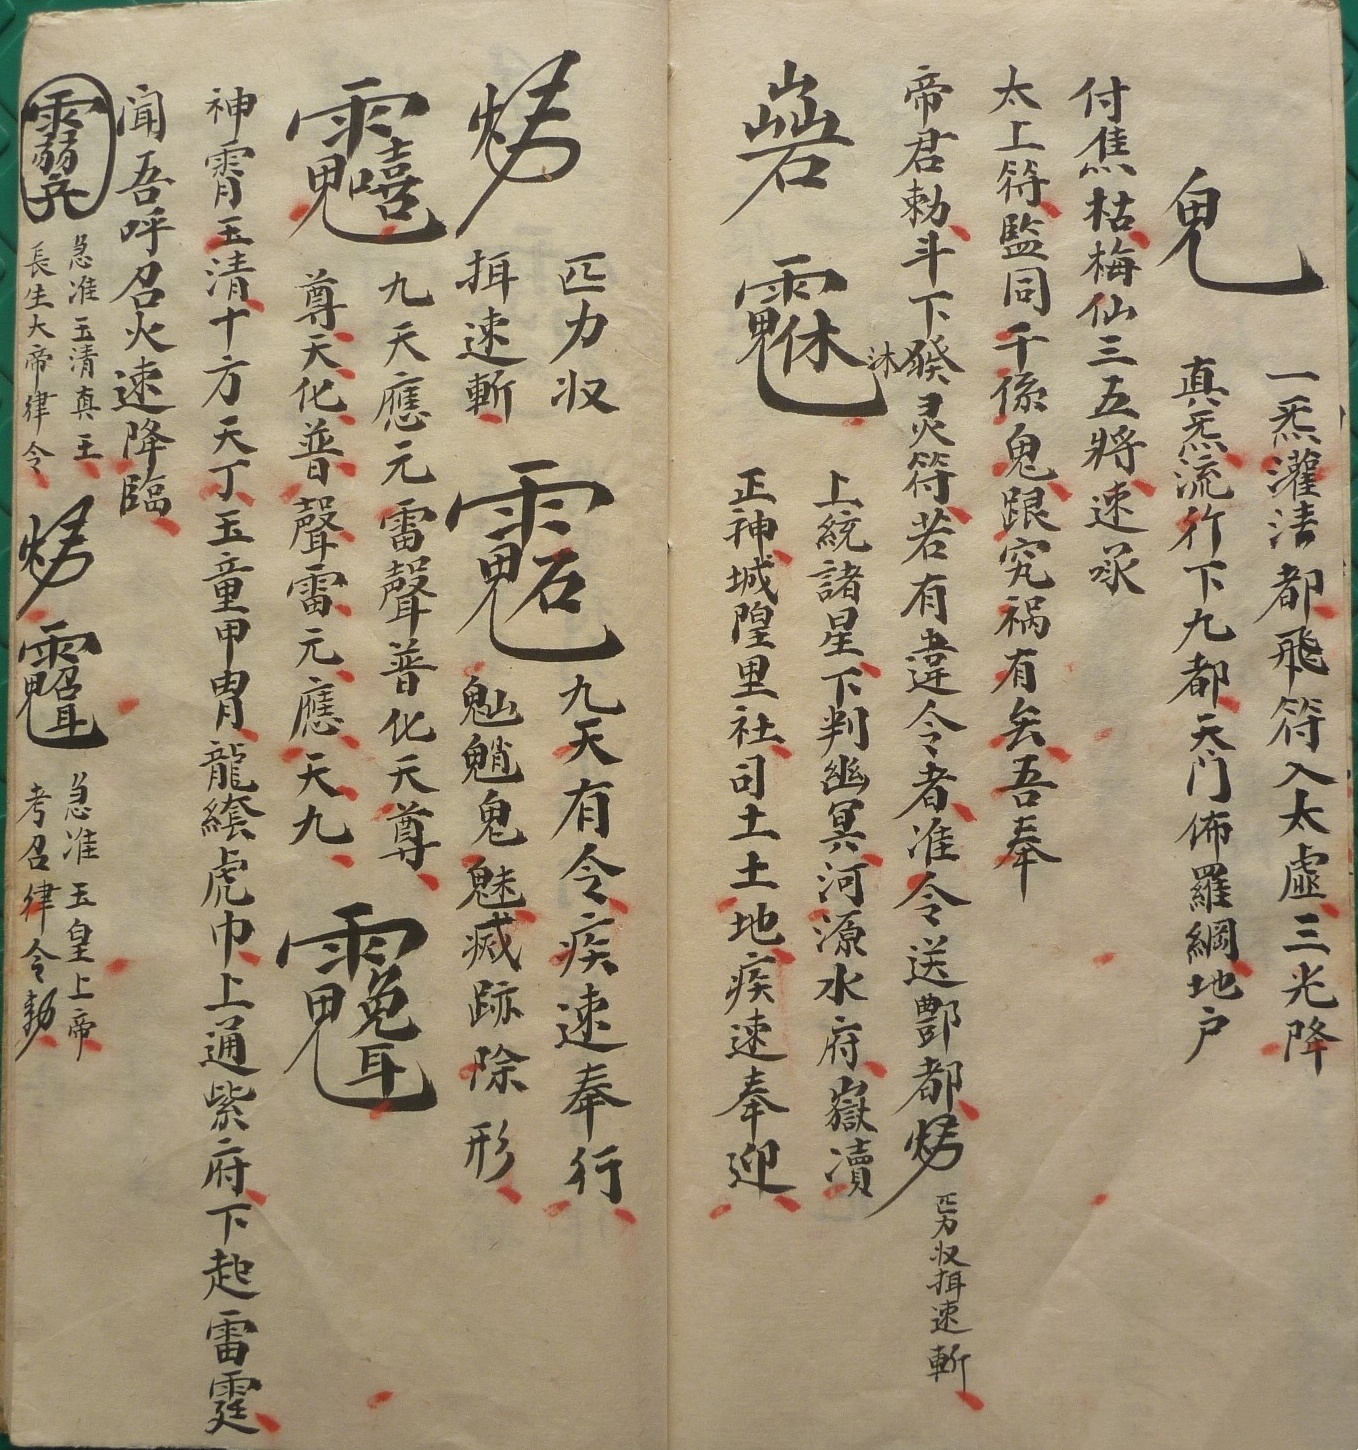 一炁灌清都飛符入太虛三光降
真炁流行下九都天门佈羅綱地户
付焦枯梅仙三五將速承
太上符監同千係鬼跟究祸有矣吾奉
帝君勅斗下發灵符若有違令者准令送酆都
匹力収挕速斬
沐
上統諸星下判幽冥河源水府嶽瀆
正神城隍里社司土土地疾速奉迎
匹力収
挕速斬
九天有令疾速奉行
魈鬼魅滅跡除形
九天應元雷聲普化天尊
尊天化普聲雷元應天九
神霄玉清十方天丁玉童甲冑龍縧虎巾上通紫府下起雷霆
闻吾呼召火速降臨
急准玉清真王
長生大帝律令
急准玉皇上帝
考召律令勅